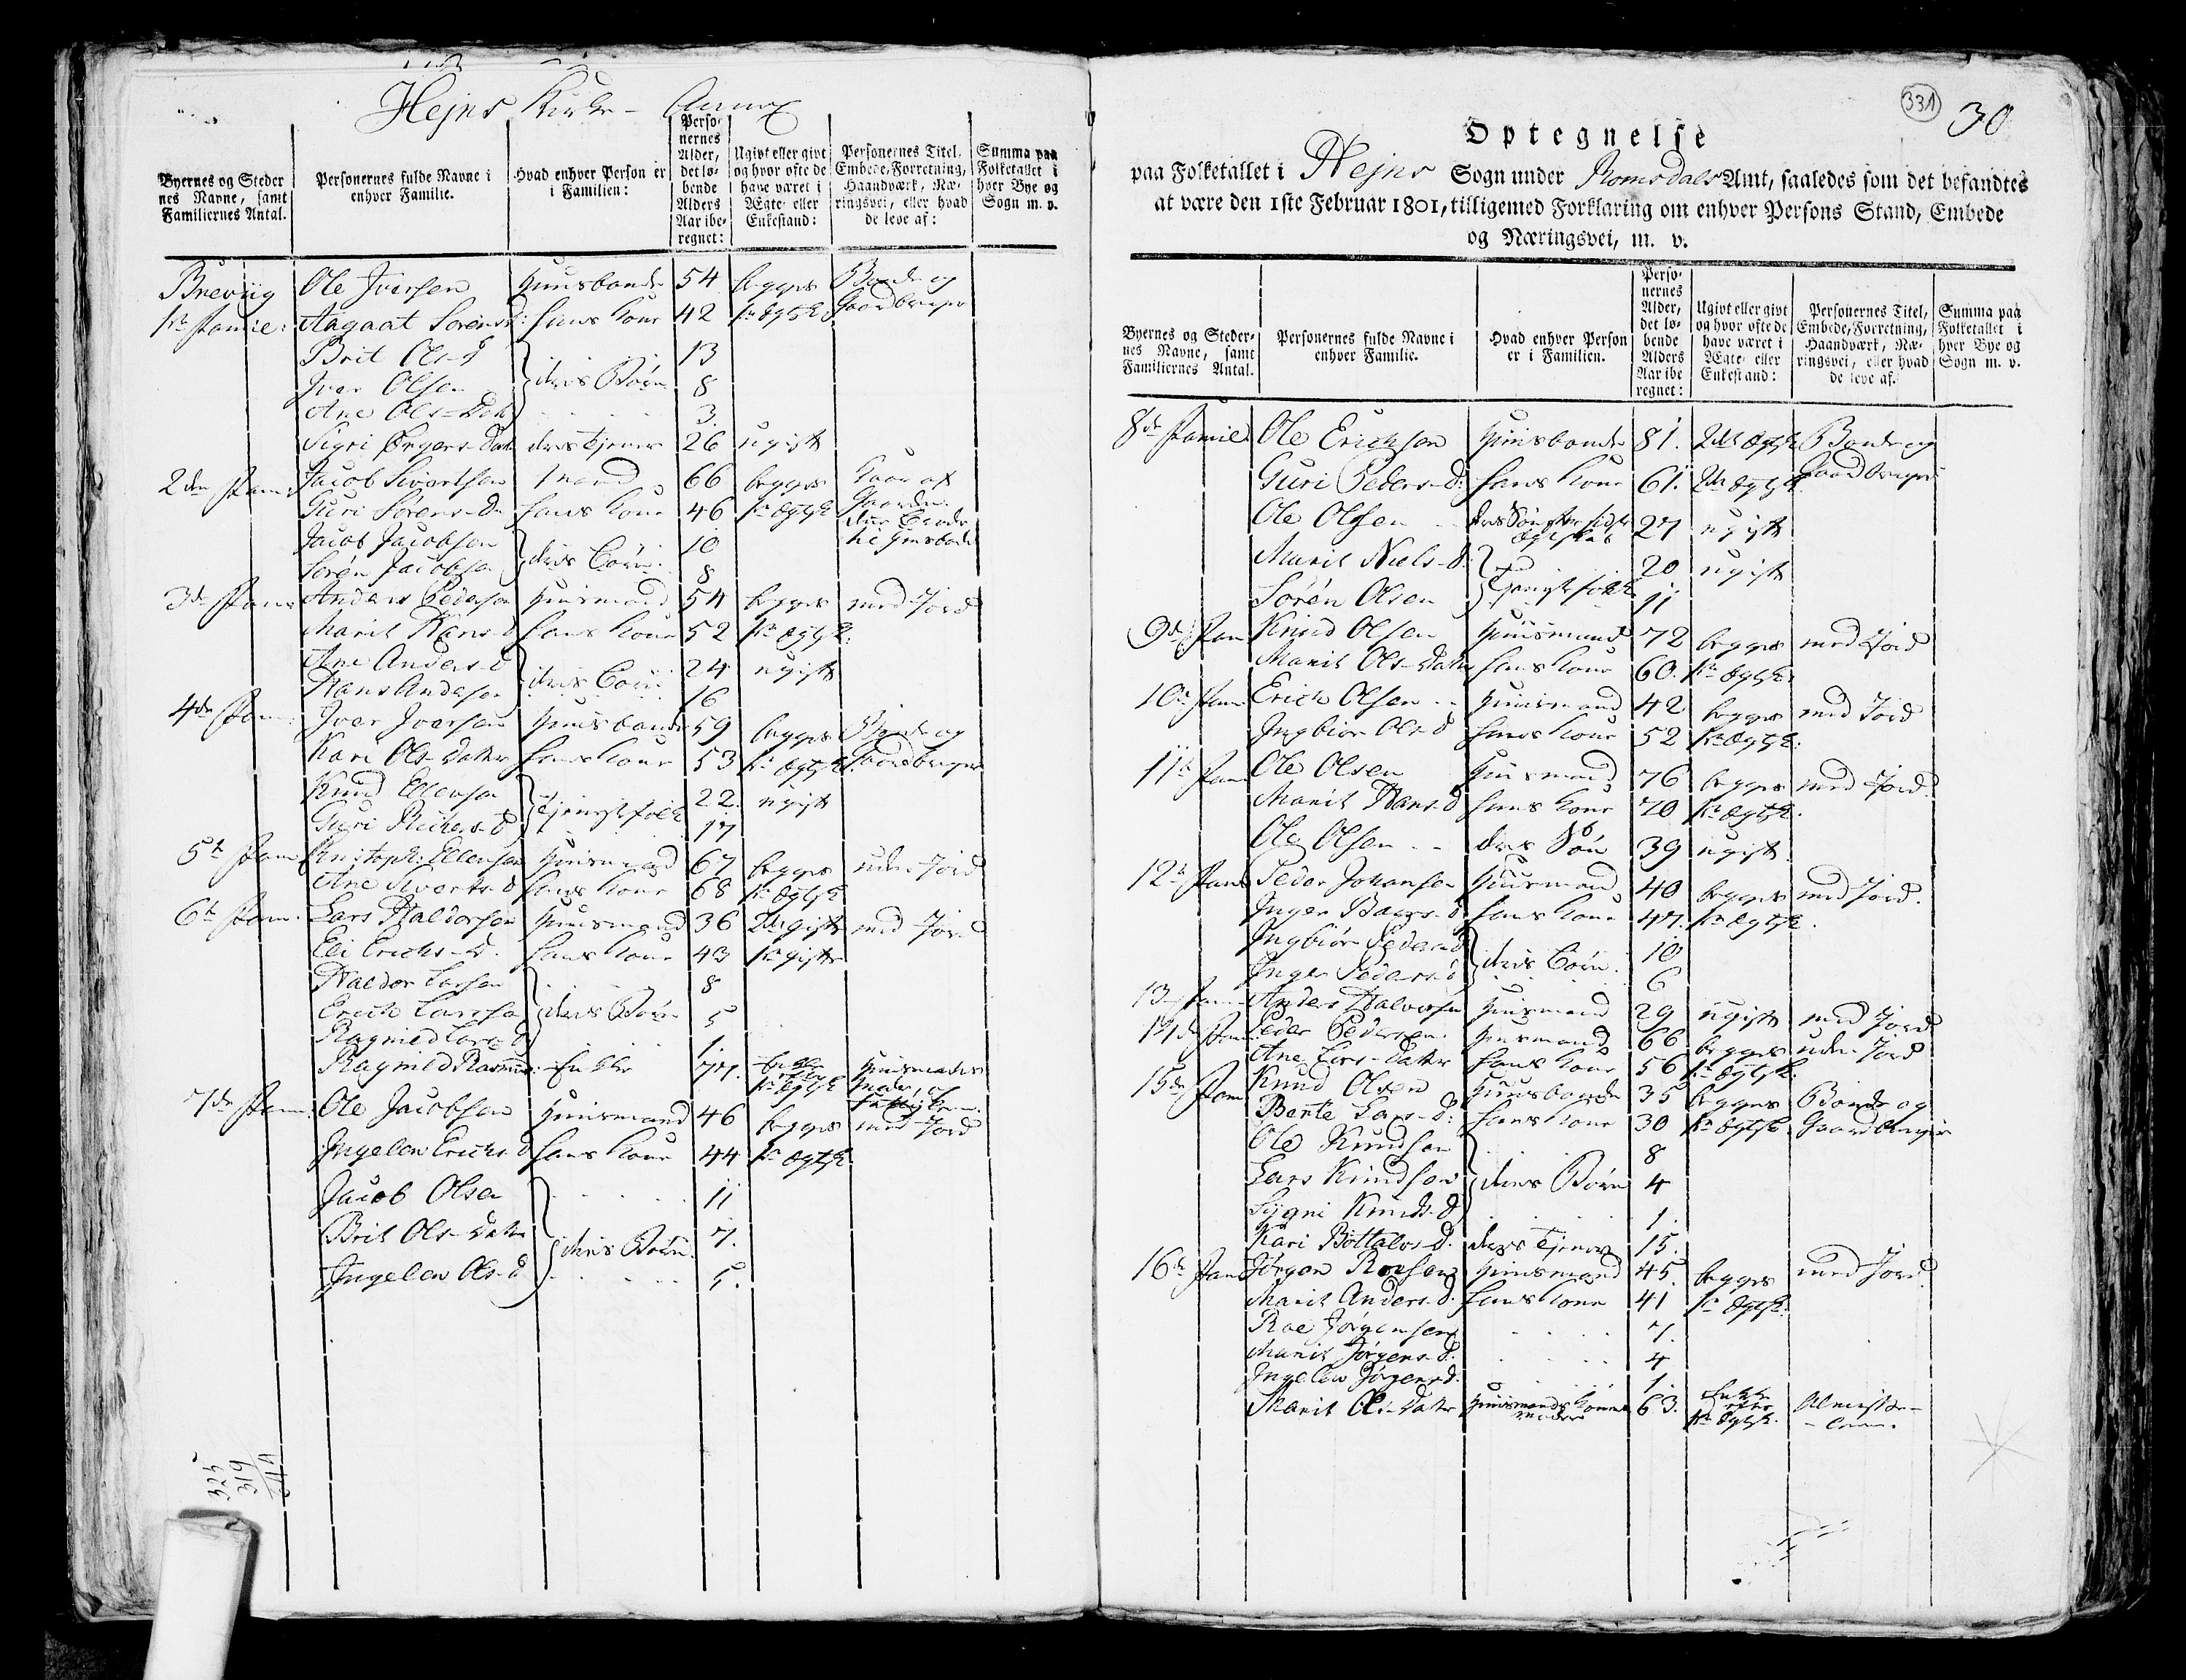 Hejns Kirke - Annex
Byernes og Steder
nes Navne, samt
Familiernes Antal.
Personernes fulde Navne i
enhver Familie.
Hvad enhver Person er
i Familien:
Perso-
nernes
Alder,
det lø-
bende
Alders
Aar ibe-
regnet:
Ugivt eller givt
og hvor ofte de
have været i
Ægte- eller
Enkestand:
Personernes Titel,
Embede, Forretning,
Haandværk, Næ-
ringsvei, eller hvad
de leve af:
Summa paa
Folketallet i
hver Bye og
Sogn m. v.
Breviig Ole Iversen Huusbonde 54 begges Bonde og
1ste Familie: Aagaat Sørensd: hans Kone 42 1te Ægtsk. Gaardbruger
Brit Ols-d 13
Iver Olsen deres Børn 8
Ane Ols-Dat 3.
Sigri Ørgers-Dat deres Tjener 26 ugift
2den Fam: Jacob Sivertsen Mand 66 begges Kaar af
Guri Sørens-D hans Kone 46 1te Ægtsk Gaarden
Jacob Jacobsen 10
Søren Jacobsen deres Børn 8
3de Fam Anders Pedersen Huusmand 54 begges med Jord
Marit Hans-d hans Kone 52 1te Ægtsk:
Ane Anders-d deres Børn 24 ugift
Hans Andersen 16
4de Fam. Iver Iversen Huusbonde 59 begges Bonde og
Kari Ols-Datter hans Kone 53 1te Ægtsk. Gaardbruger
Knud Ellensen Tjenestfolk 22. ugift
Guri Rikers-d 17
5te Fam Christoph: Ellensen Huusmand 67 begges uden Jord
Ane Siverts-d hans Kone 68 1te Ægtsk
6te Fam. Lars Haldorsen Huusmand 36 2den gift med Jord
Eli Erichs-d. hans Kone 43 1te gift
Haldor Larsen 8
Erich Larsen deres Børn 5
Ragnild Lars-d 1.
Ragnild Rasmus: Enke 77. Enke efter 1te Ægtsk Huusmandens Moder, og
7de Fam. Ole Jacobsen Huusmand 46 begges med Jord
Ingelen Erichs-d hans Kone 44 1te Ægtsk.
Jacob Olsen 11
Brit Ols-Datter 7.
Ingelen Ols-d deres Børn 5.
325
319
644
331
30
Optegnelse
paa Folketallet i Hejns Sogn under Romsdals Amt, saaledes som det befandtes
at være den 1ste Februar 1801, tilligemed Forklaring om enhver Persons Stand, Embede
og Næringsvei, m. v.
Byernes og Steder-
nes Navne, samt
Familiernes Antal.
Personernes fulde Navne i
enhver Familie.
Hvad enhver Person
er i Familien.
Perso-
nernes
Alder,
det lø-
bende
Alders
Aar ibe
regnet:
Ugivt eller givt
og hvor ofte de
have været i
Ægte- eller
Enkestand:
Personernes Titel,
Embede, Forretning,
Haandværk, Næ-
ringsvei, eller hvad
de leve af.
Summa paa
Folketallet i
hver Bye og
Sogn m. v.
8de Famil Ole Erichsen Huusbonde 81. 2det Ægtsk Bonde og
Guri Peders-D: hans Kone 61. 2det Ægtsk. Gaardbruger
Ole Olsen deres Søn 27 ugift
Marit Niels-d: 20 ugift
Søren Olsen Tjenestfolk 11
9de Fam Knud Olsen Huusmand 72 begges med Jord
Marit Ols-Datter hans Kone 60. 1te Ægtsk:
10de Fam Erich Olsen Huusmand 42 begges med Jord
Ingbiør Ols-d hans Kone 52 1te Ægtsk:
11te Fam Ole Olsen Huusmand 76 begges med Jord.
Marit Hans-d hans Kone 70 1te Ægtsk.
Ole Olsen deres Søn 39 ugift
12te Fam Peder Johansen Huusmand 40 begges med Jord.
Inger Baars-d hans Kone 47. 1te Ægtsk.
Ingbiør Peders-d 10
Inger Peders-d deres Børn. 6
13 Fam Anders Halvorsen Huusmand 29 ugift med Jord
14de Fam Peder Pedersen. Huusmand 66 begges uden Jord
Ane Lars-Datter hans Kone 56 1te Ægtsk.
15de Fam Knud Olsen Huusbonde 35 begges Bonde og
Berite Lars-d: hans Kone 30 1te Ægtsk. Gaardbruger
Ole Knudsen 8
Lars Knudsen deres Børn 4
Sygni Knuds-d 1.
Kari Bottolvs-d. deres Tjener 15.
16de Fam Jørgen Roesen Huusmand 45. begges med Jord
Marit Anders-d. hans Kone 41 1te Ægtsk:
Roe Jørgensen 7.
Marit Jørgens-d. 4
Ingelen Jørgens-d. 1.
Marit Ols-Datter Huusmands Konens Moder 63. Enke efter 1te Ægtsk. Almisse-
-lem.